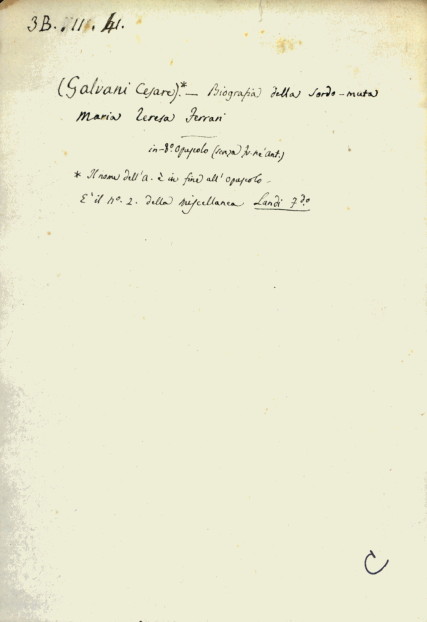 3B. II. 41.
(Galvani Cesare).* — Biografia della sordo-muta
Maria Teresa Ferrari
in-8.° Opuscolo (senza fr. nè ant.)
* Il nome dell'a. è in fine all'opuscolo.
È il n.° 2. della miscellanea Landi 7.°
C